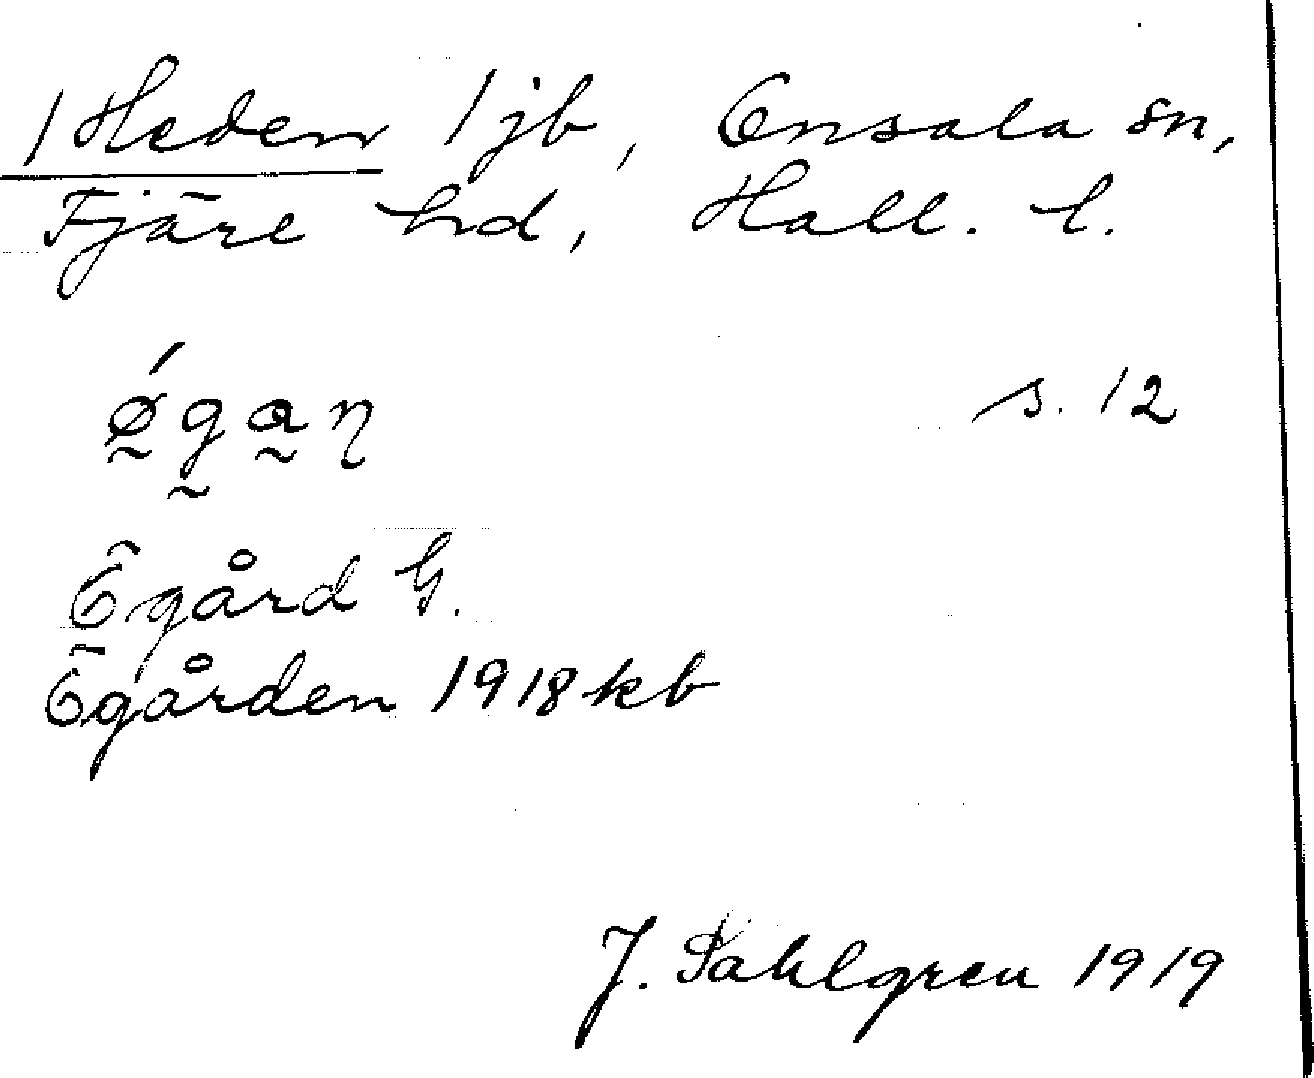 1 Heden 1 jb, Onsala sn,
Fjäre hd, Hall. l.
ǿ̰g̰a̰ɳ s. 12
Ögård G.
Ögården 1918 kb
J. Sahlgren 1919